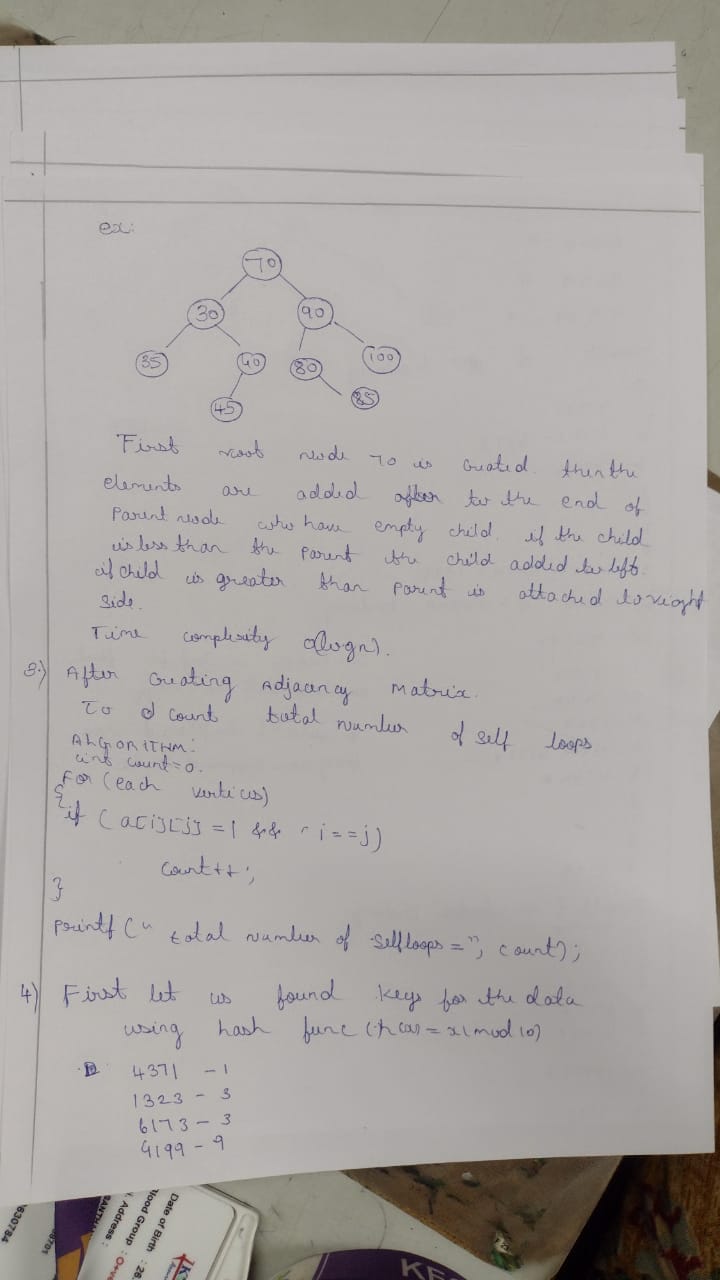 ex:
70
30 90
35 40 80 100
45 85
First root node 70 is created. then the
elements are added to the end of
Parent node who have empty child. if the child
is less than the parent the child added to left.
if child is greater than parent is attached to right
side.
Time complexity O(logn).
3.) After creating Adjacency Matrix.
To count total number of self loops
ALGORITHM:
int count=0.
For (each vertices)
{
if (a[i][j] = 1 && i==j)
count++;
}
printf(" total number of selfloops =", count);
4) First let us found keys for the data
using hash func (h(x) = x(mod 10)
4371 - 1
1323 - 3
6173 - 3
4199 - 9
630784
98701
Address :
Blood Group : O+ve
Date of Birth : 26
KE